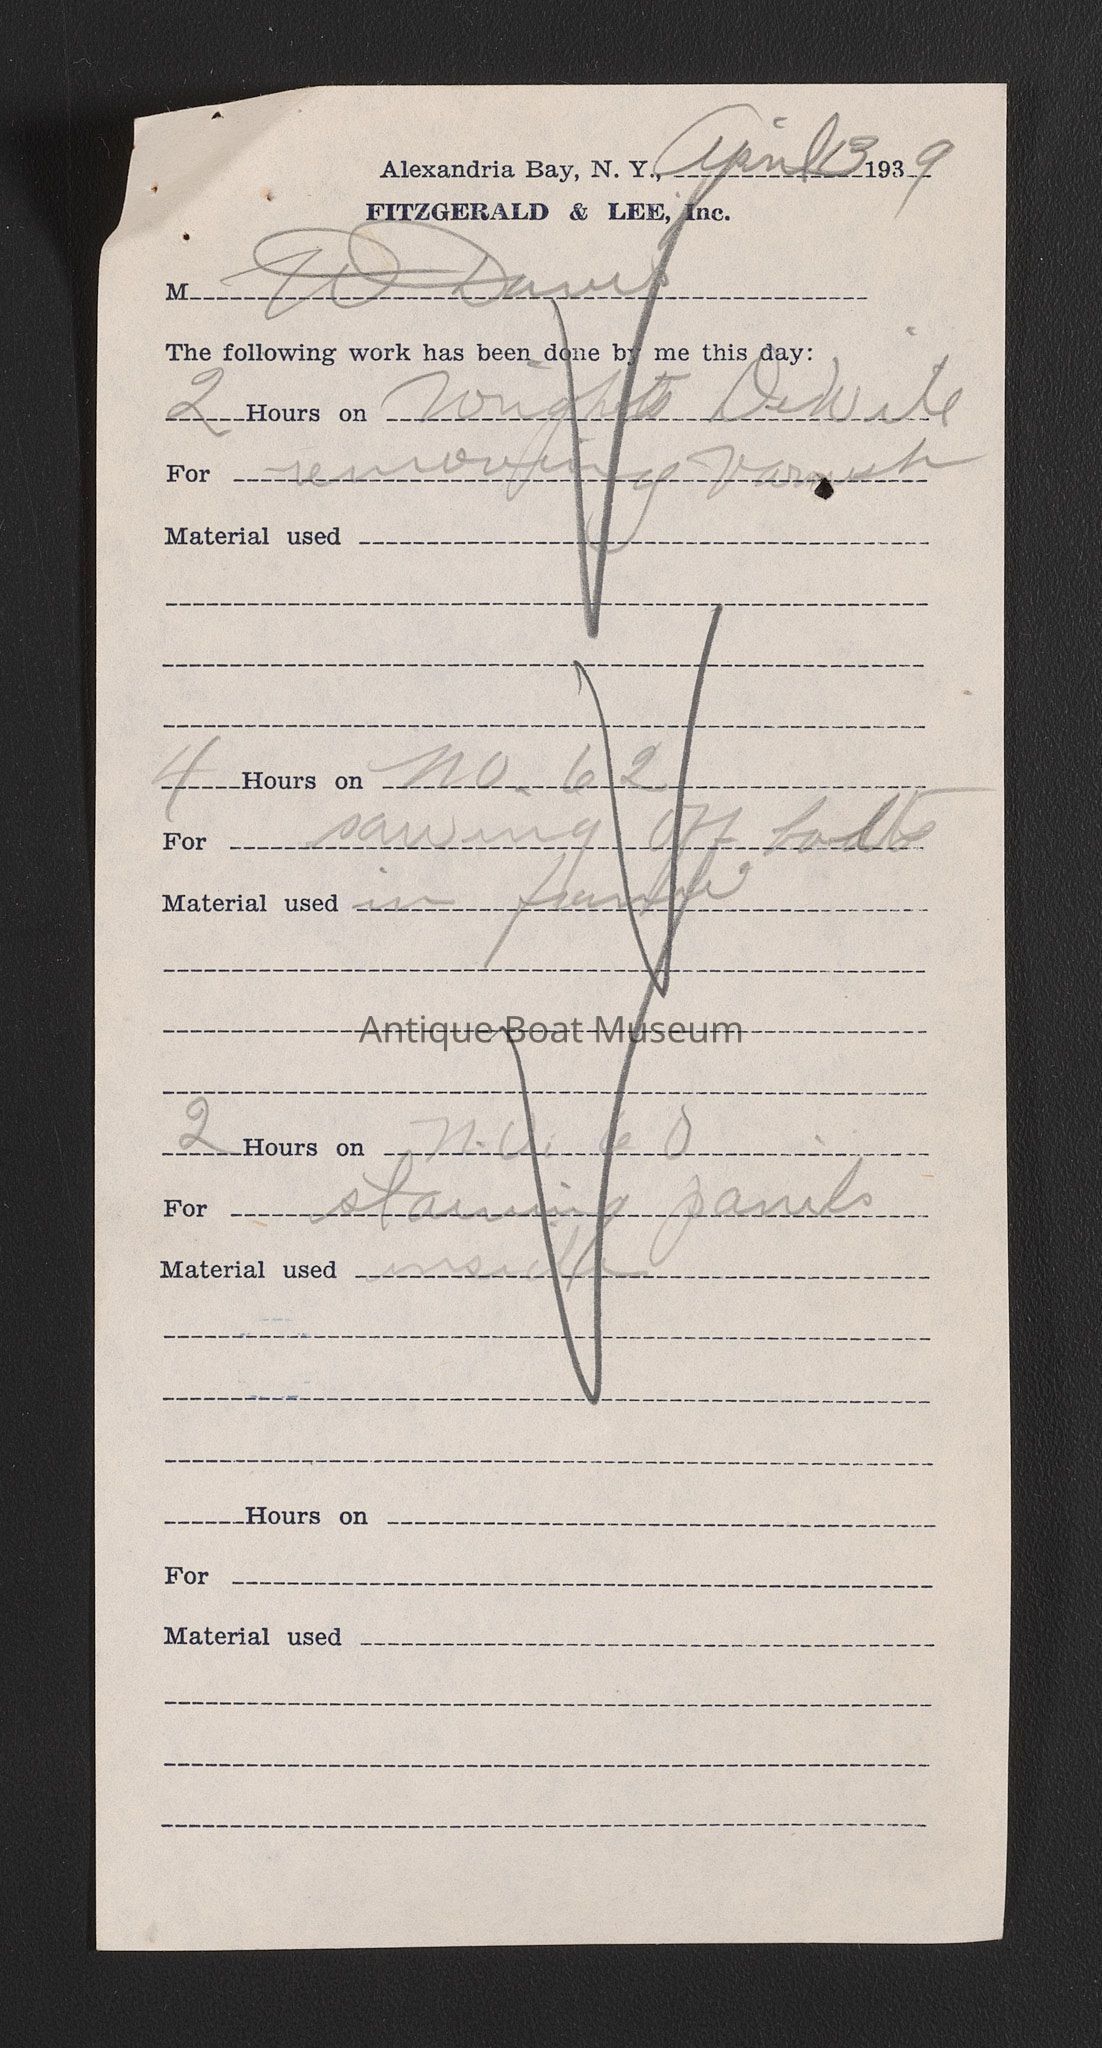 Alexandria Bay, N. Y., April 13 1939
FITZGERALD & LEE, Inc.
M W Davis
The following work has been done by me this day:
2 Hours on Wrights
For removing varnish
Material used
4 Hours on No. 62
For sawing off bolts
Material used in
Antique Boat Museum
2 Hours on No. 60
For staining panels
Material used inside
Hours on
For
Material used